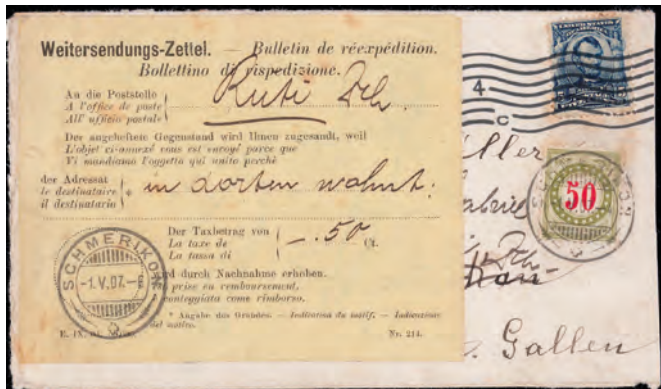 Weitersendungs-Zettel. — Bulletin de réexpédition.
Bollettino di rispedizione.
An die Poststelle
A l'office de poste
All' ufficio postale
Ruti Zch
Der angeheftete Gegenstand wird Ihnen zugesandt, weil
L'objet ci-annexé vous est envoyé parce que
Vi mandiamo l'oggetto qui unito perchè
der Adressat
le destinataire *
il destinatario
in dorten wohnt.
Der Taxbetrag von
La taxe de
La tassa di
—.50 Ct.
wird durch Nachnahme erhoben.
prise en remboursement.
conteggiata come rimborso.
* Angabe des Grundes. — Indication du motif. — Indicazione
del motivo.
Nr. 214.
SCHMERIKON
-1.V.07.-6
4
C
50
SCHMERIKON
Zch
Gallen